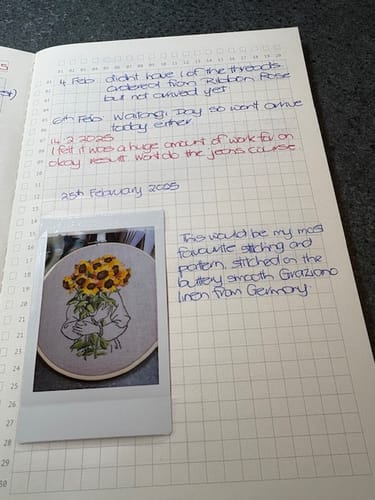 4 Feb didn't have 1 of the threads
ordered from Ribbon Rose
but not arrived yet
6th Feb Waitangi Day so won't arrive
today either
14 2 2025
I felt it was a huge amount of work for an
okay result. Won't do the jeans course
25th February 2025
This would be my most
favourite stitching and
pattern, stitched on the
buttery smooth Graziano
linen from Germany